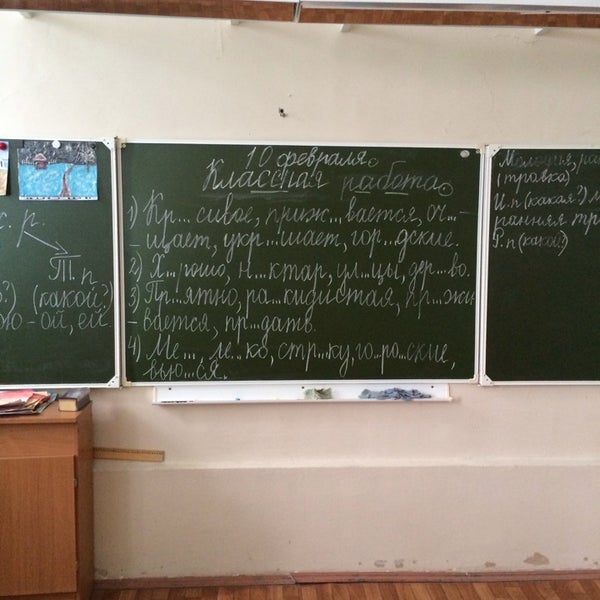 с. р.
Т. п
(какой?)
-ой, ей.
10 февраля.
Классная работа.
1) Кр...сивое, приж...вается, оч...-
-щает, укр...шает, гор...дские.
2) Х...рошо, н...ктар, ул...цы, дер...во.
3) Пр...ятно, ра...кидистая, пр...жи
-вается, пр...дать.
4) Ме..., ле...ко, стр...ку, го...ро...ские,
вью...ся.
(травка)
И.п (какая?)
ранняя
Р.п (какой?)